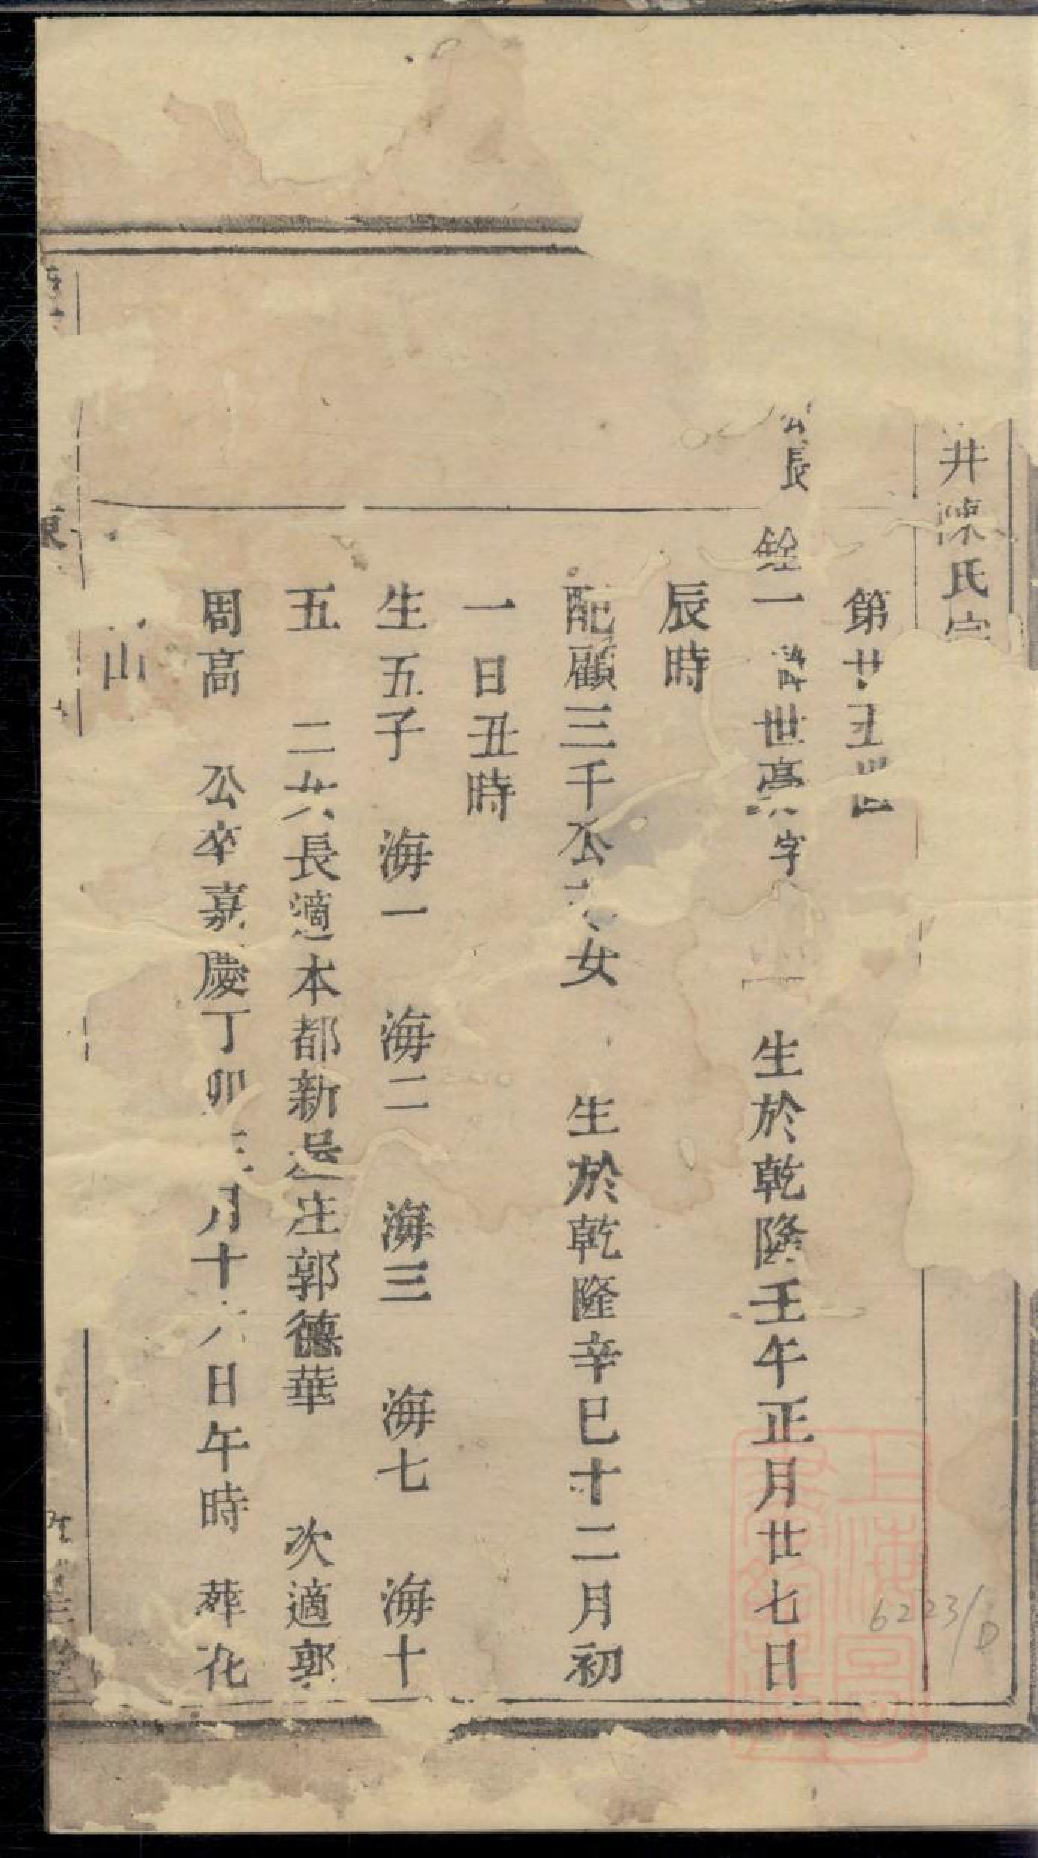 井陳氏宗
第廿五世
公長
銓一 諱世亮字 生於乾隆壬午正月廿七日
辰時
配顧三千公女 生於乾隆辛巳十二月初
一日丑時
生五子 海一 海二 海三 海七 海十
五 二女長適本都新造庄郭德華 次適郭
周高 公卒嘉慶丁卯 月十六日午時 葬花
山
6223/D